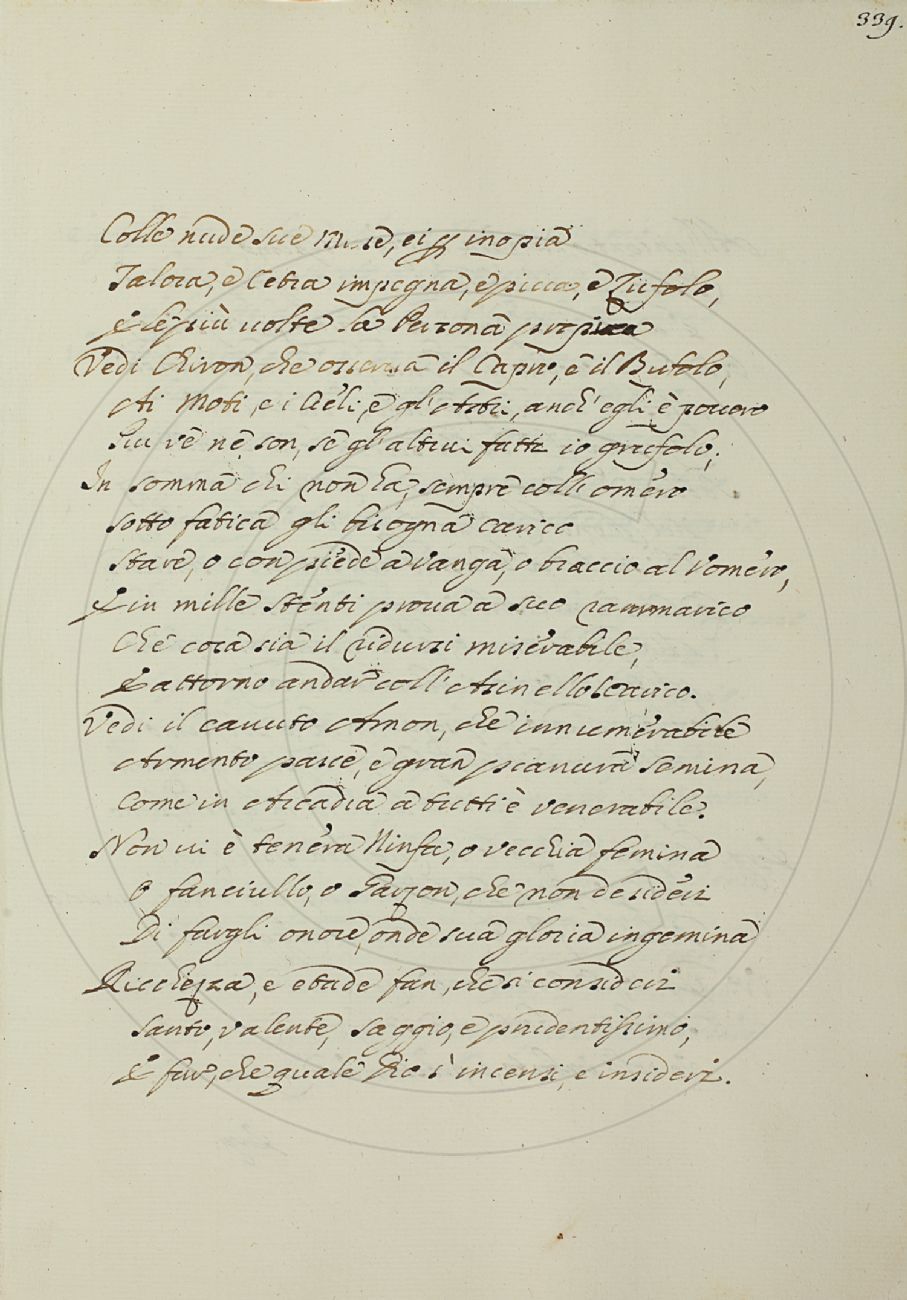 339.
Colle nude sue Muse, ei per inopia
Talora, e Cetra impegna, e picca, e Zufolo,
E le più volte la Persona propria
Vedi Chiron, che osserva il Capro, e il Bufolo,
Ai Moti, e i Cieli, e gl'Astri, anch'egli è povero
Più ve ne son, se gl'altrui fatti io
In somma chi non ha, sempre coll'omero
sotto fatica gli bisogna carico
Stare, o con piede a vanga, o braccio al vomero,
E in mille stenti prova a suo rammarico
Che cosa sia il ridursi miserabile,
E attorno andar coll'Asinello scarico.
Vedi il canuto Amon, che innumerabile
Armento pasce, e gran pianura semina,
Come in Arcadia a tutti è venerabile.
Non vi è tenera Ninfa, o vecchia femina
O fanciullo, o Garzon, che non desideri
Di fargli onore, onde sua gloria ingemina
Ricchezza, e etade fan, che si consideri
Santo, valente, saggio, e prudentissimo,
E far, che quale Dio s'incensi, e insideri.